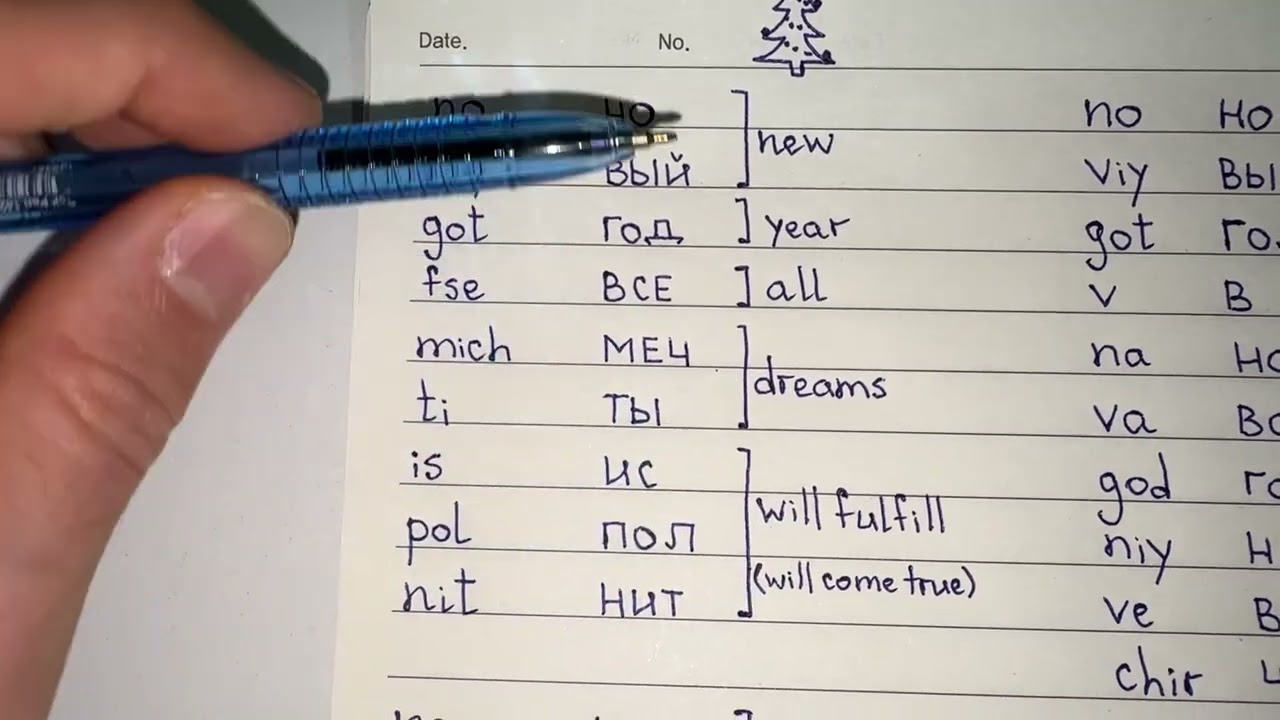 Date. No.
no но ] new no но
вый viy вы
got год ] year got го
fse все ] all v в
mich меч ] dreams na
ti ты va
is ис ] will fulfill god
pol пол niy н
nit нит (will come true) ve в
chir